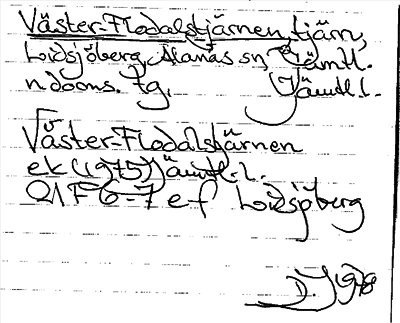 Väster-Flodalstjärnen, tjärn,
Loåsjöberg, Alanäs sn, Jämtl.
n. doms. tg, Jämtl. l.
Väster-Flodalstjärnen
ek (1975) Jämtl. l.
21F 6-7 e f Loåsjöberg
D.J 1978